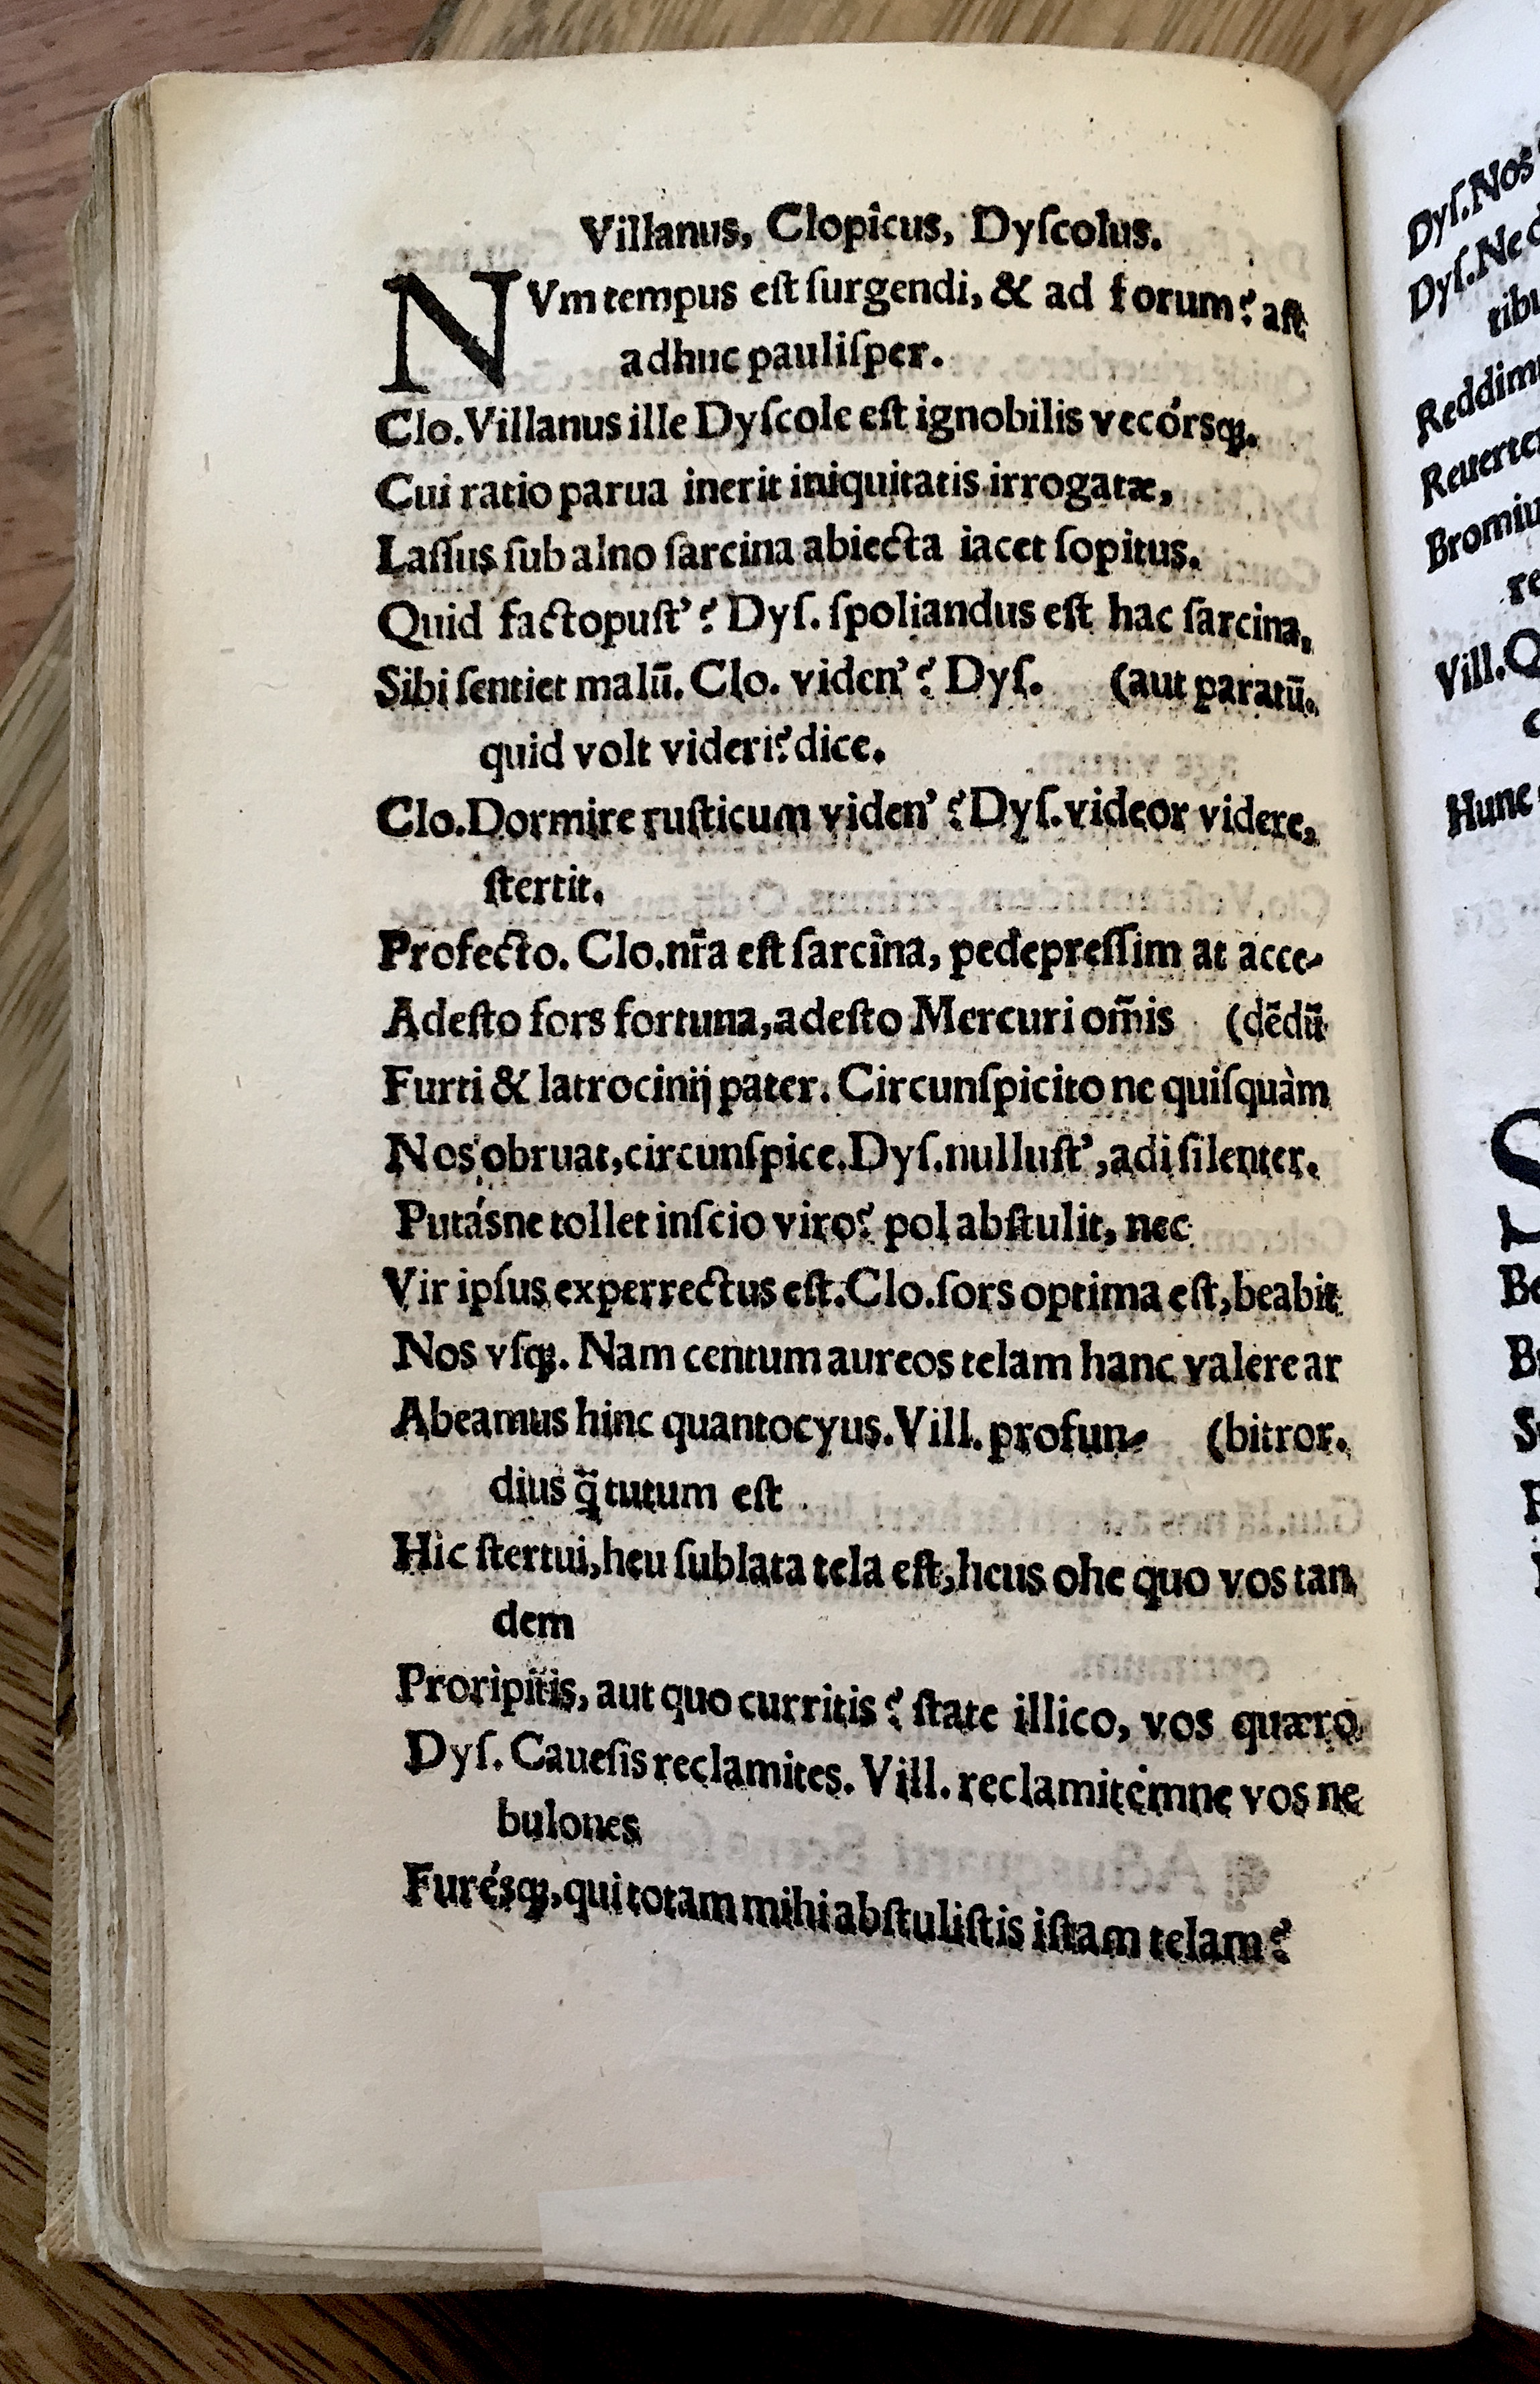 Villanus, Clopîcus, Dyſcolus.
NVm tempus eſt ſurgendi, & ad forum? aſt
adhuc pauliſper.
Clo. Villanus ille Dyſcole eſt ignobilis vecórsqꝫ.
Cui ratio parua inerit iniquitatis irrogatæ,
Laſſus ſub alno ſarcina abiecta iacet ſopitus.
Quid factopuſt’? Dyſ. ſpoliandus eſt hac ſarcina,
Sibi ſentiet malū. Clo. viden’? Dyſ. (aut paratū.
quid volt videri? dice.
Clo. Dormire ruſticum viden’? Dyſ. videor videre,
ſtertit.
Profecto. Clo. nr̃a eſt ſarcîna, pedepreſſim at acce-
Adeſto fors fortuna, adeſto Mercuri om̃is (dēdū
Furti & latrocinij pater. Circunſpicito ne quiſquàm
Nos obruat, circunſpice. Dyſ. nulluſt’, adi ſilenter.
Putásne tollet inſcio viro? pol abſtulit, nec
Vir ipſus experrectus eſt. Clo. ſors optima eſt, beabit
Nos vſqꝫ. Nam centum aureos telam hanc valere ar
Abeamus hinc quantocyus. Vill. profun- (bitror.
dius q̃ tutum eſt
Hic ſtertui, heu ſublata tela eſt, heus ohe quo vos tan
dem
Proripitis, aut quo curritis? ſtate illico, vos quæro
Dyſ. Caueſis reclamites. Vill. reclamitémne vos ne
bulones
Furésqꝫ, qui totam mihi abſtuliſtis iſtam telam?
Dyſ. Nos
Dyſ. Ne
tibu
Reddim
Reuerte
Bromiu
re
Vill. Q
Hunc
S
Be